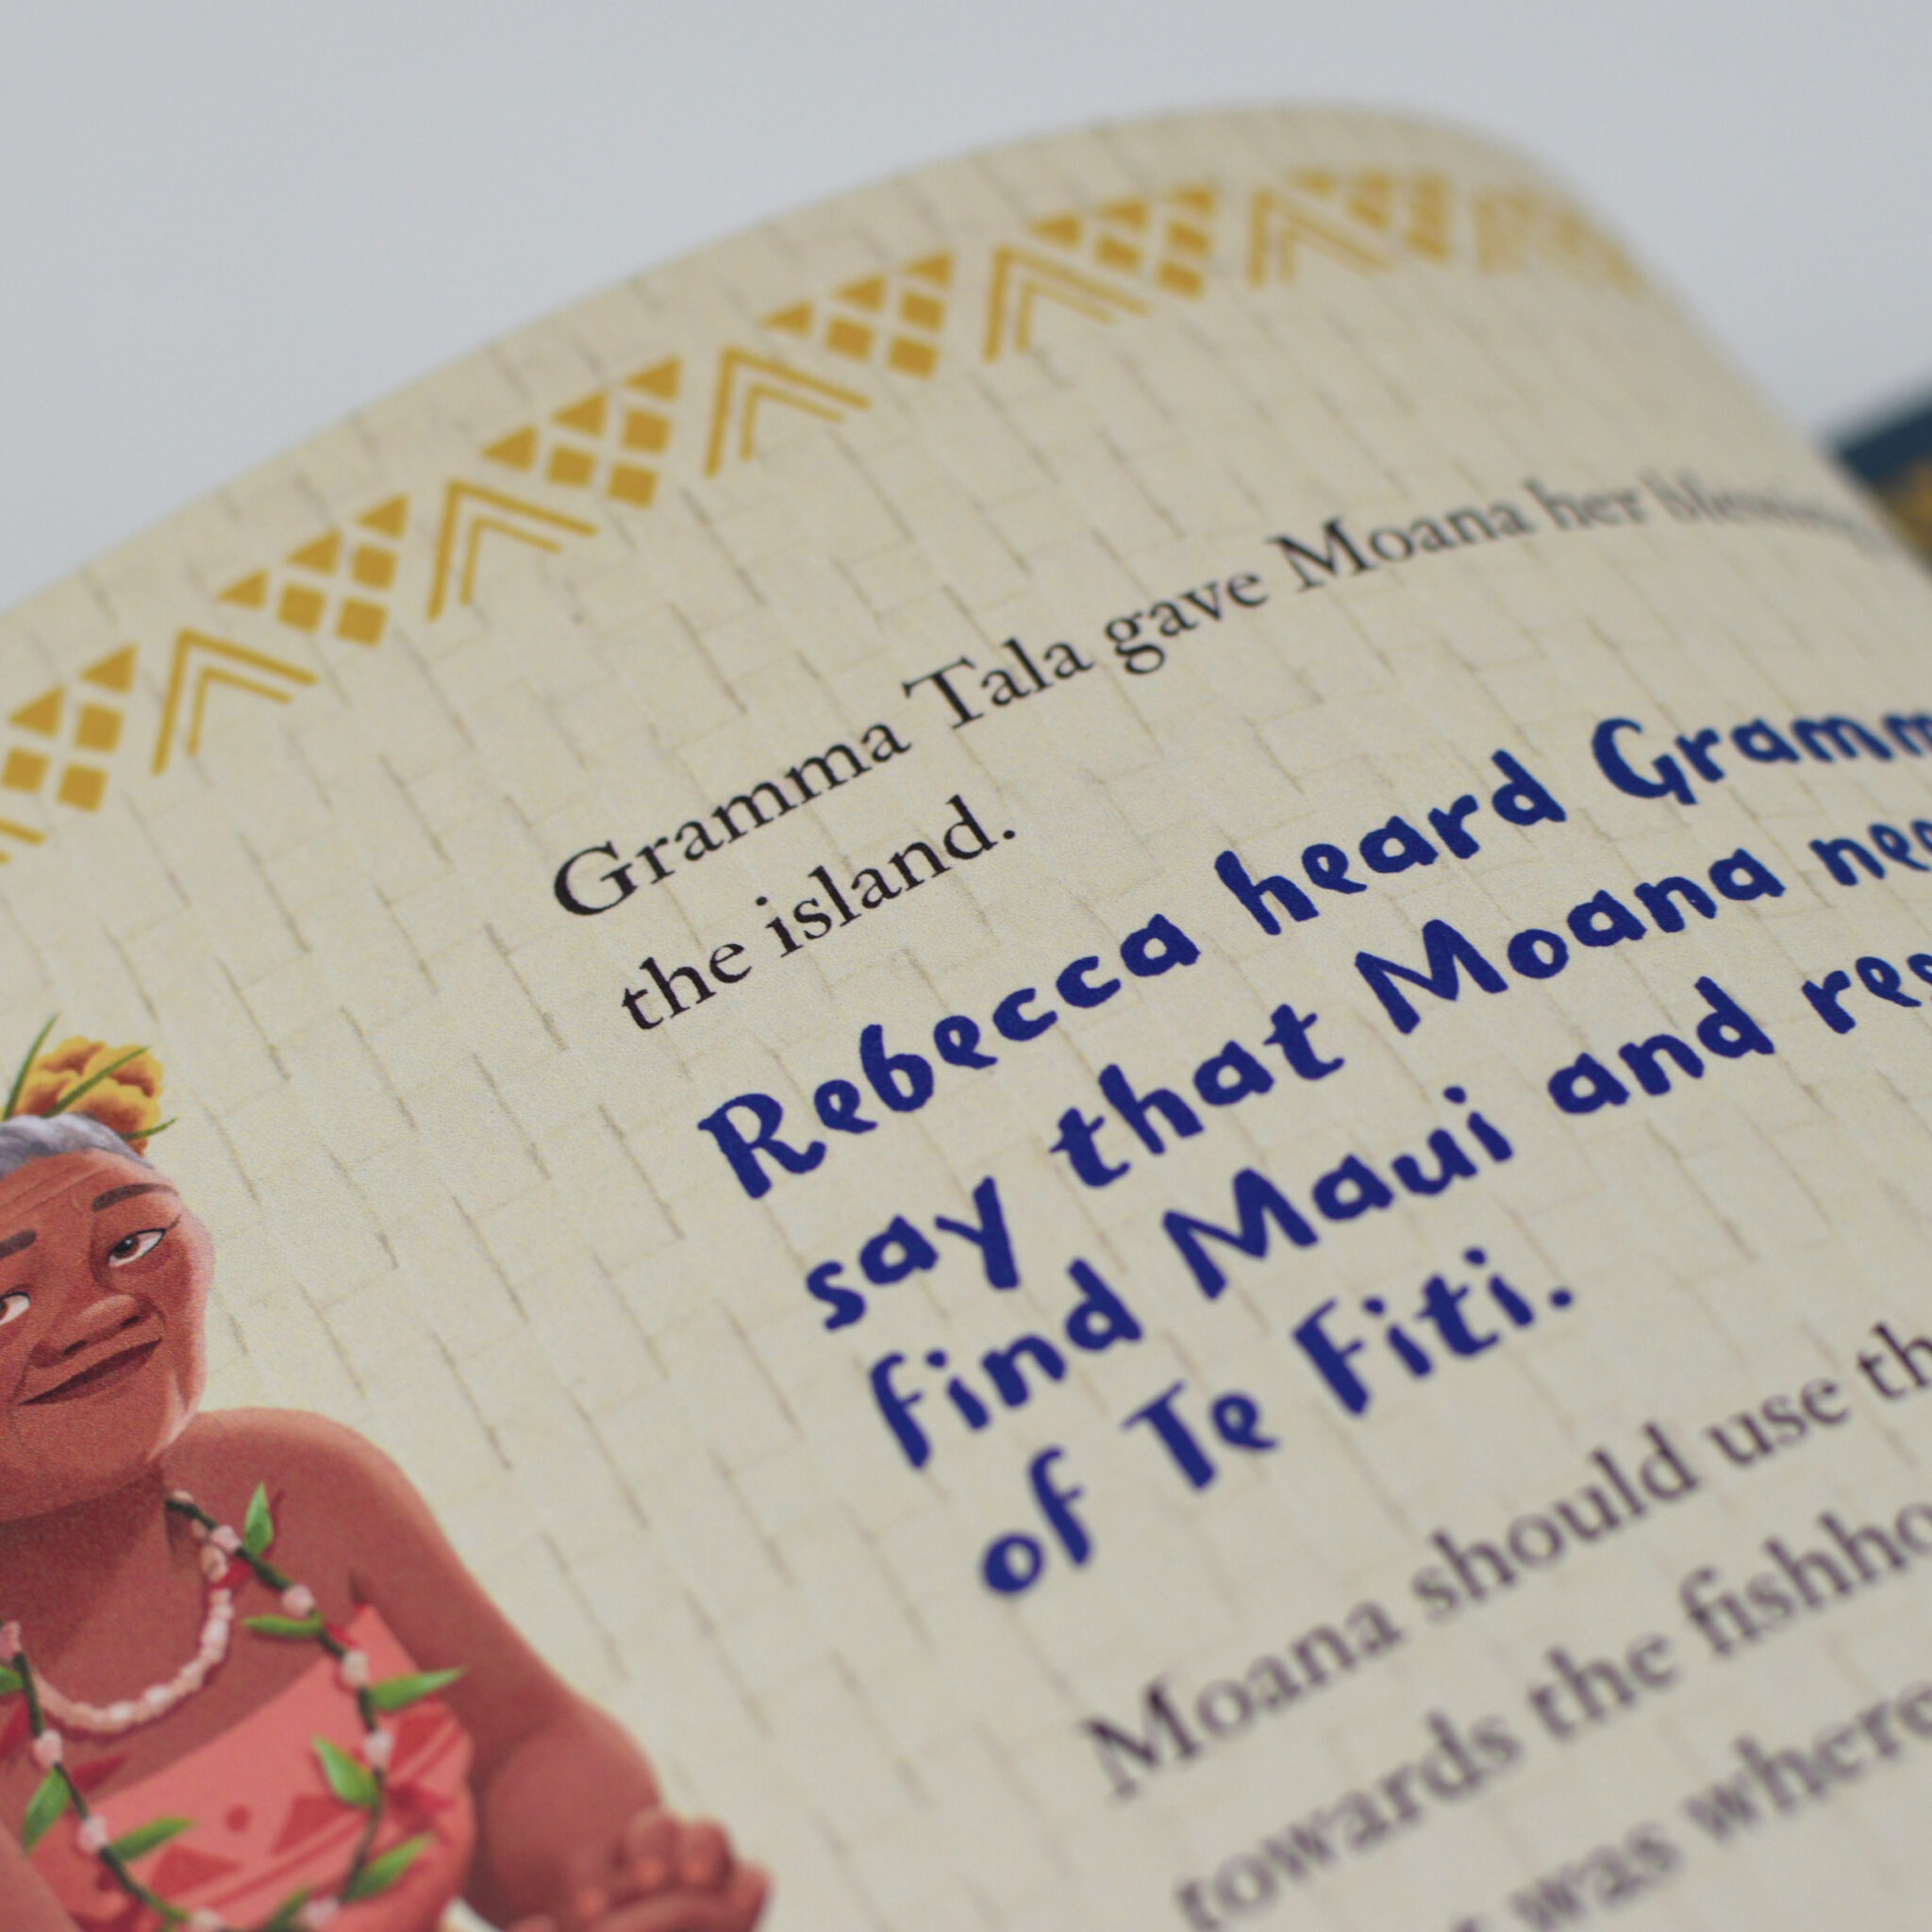 Gramma Tala gave Moana her blessing
the island.
Rebecca heard Gramm
say that Moana nee
find Maui and res
of Te Fiti.
Moana should use th
towards the fishho
was where